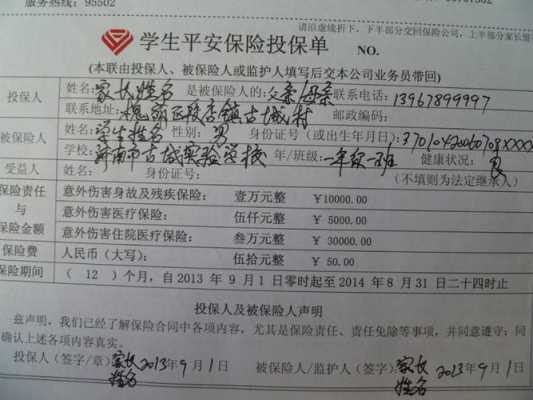 服务热线: 95502
请沿虚线折下,下半部分交回保险公司,上半部分家长留
学生平安保险投保单 NO.
(本联由投保人、被保险人或监护人填写后交本公司业务员带回)
投保人 姓名:家长姓名 是被保险人的:父亲母亲 联系电话:13967899997
联系地址:槐荫区段店镇古城村 邮政编码:
被保险人 姓名:学生姓名 性别:男 身份证号(或出生年月日):
学校:济南市古城实验学校 年/班级:一年级一班 健康状况:良
受益人 姓名: 身份证号: (不填则为法定继承人)
保险责任与保险金额 意外伤害身故及残疾保险: 壹万元整 ¥10000.00
意外伤害医疗保险: 伍仟元整 ¥ 5000.00
意外伤害住院医疗保险: 叁万元整 ¥ 30000.00
保险费 人民币(大写): 伍拾元整 ¥ 50.00
保险期间 ( 12 )个月,自 2013 年 9 月 1 日零时起至 2014 年 8 月 31 日二十四时止
投保人及被保险人声明
兹声明,我们已经了解保险合同中各项内容,尤其是保险责任、责任免除等事项,并同意遵守;同
确认上述各项内容真实。
投保人(签字/章)家长姓名 2013年9月1日 被保险人/监护人(签字)家长姓名 2013年9月1日